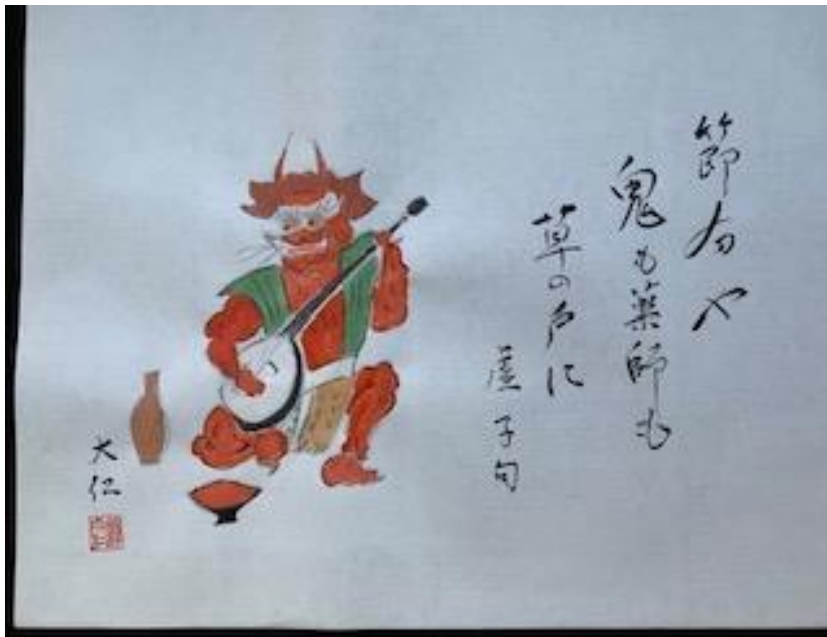 節分や
鬼も薬師も
草の戸に
虚子句
大仁